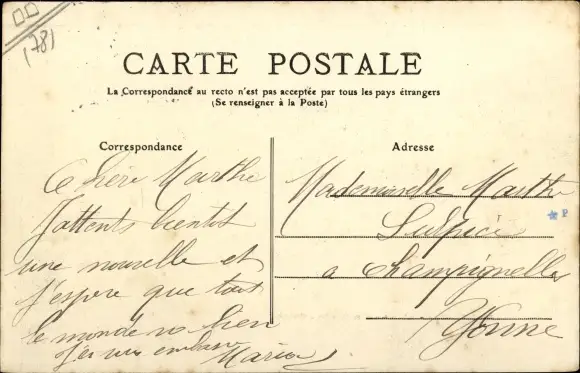 (78)
CARTE POSTALE
La Correspondance au recto n'est pas acceptée par tous les pays étrangers
(Se renseigner à la Poste)
Correspondance
Adresse
Chère Marthe
J'attents bientot
une nouvelle et
j'espère que tout
le monde va bien
Maria
Mademoiselle Marthe
Sulpice
a Champignelles
Yonne
P